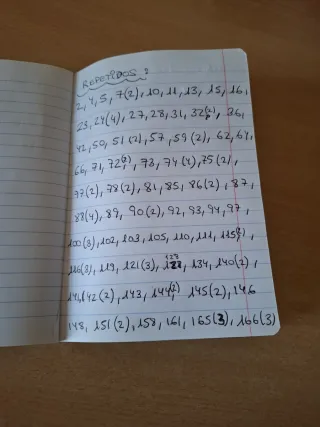 REPETIDOS:
2, 4, 5, 7(2), 10, 11, 13, 15, 16,
23, 24(4), 27, 28, 31, 32(2), 36,
42, 50, 51(2), 57, 59(2), 62, 64,
66, 71, 72(2), 73, 74(4), 75(2),
77(2), 78(2), 81, 85, 86(2), 87,
88(4), 89, 90(2), 92, 93, 94, 97,
100(3), 102, 103, 105, 110, 111, 115(2),
116(3), 119, 121(3), 128, 134, 140(2),
141, 142(2), 143, 144(2), 145(2), 146
148, 151(2), 158, 161, 165(3), 166(3)